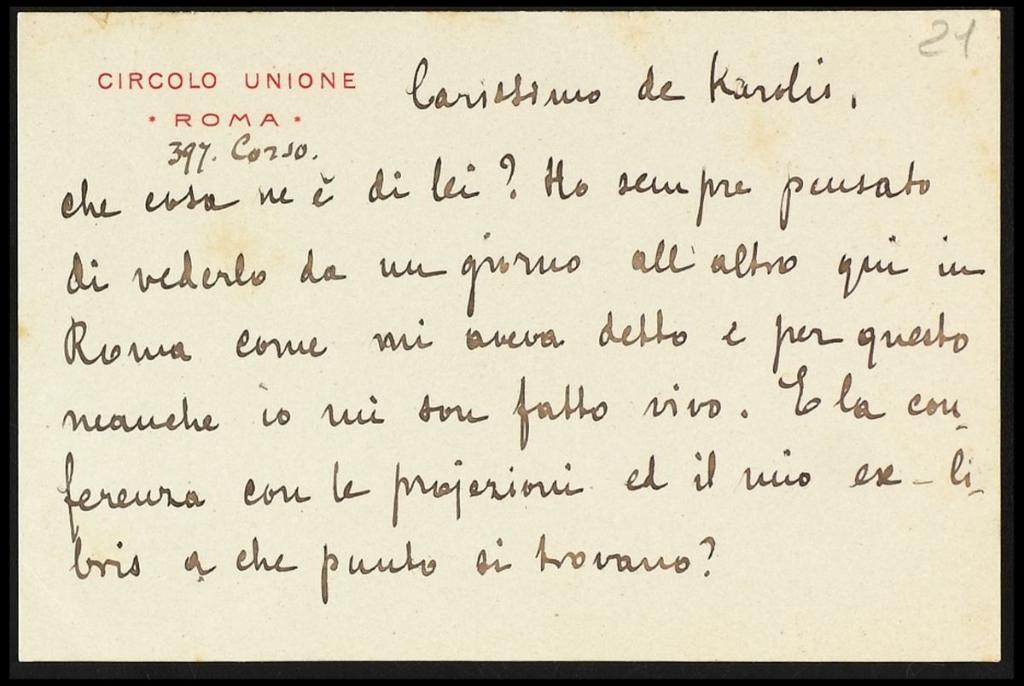 21
CIRCOLO UNIONE
• ROMA •
397. Corso.
Carissimo de Karolis,
che cosa ne è di lei? Ho sempre pensato
di vederlo da un giorno all'altro qui in
Roma come mi aveva detto e per questo
neanche io mi son fatto vivo. E la con-
ferenza con le projezioni ed il mio ex-li-
bris a che punto si trovano?